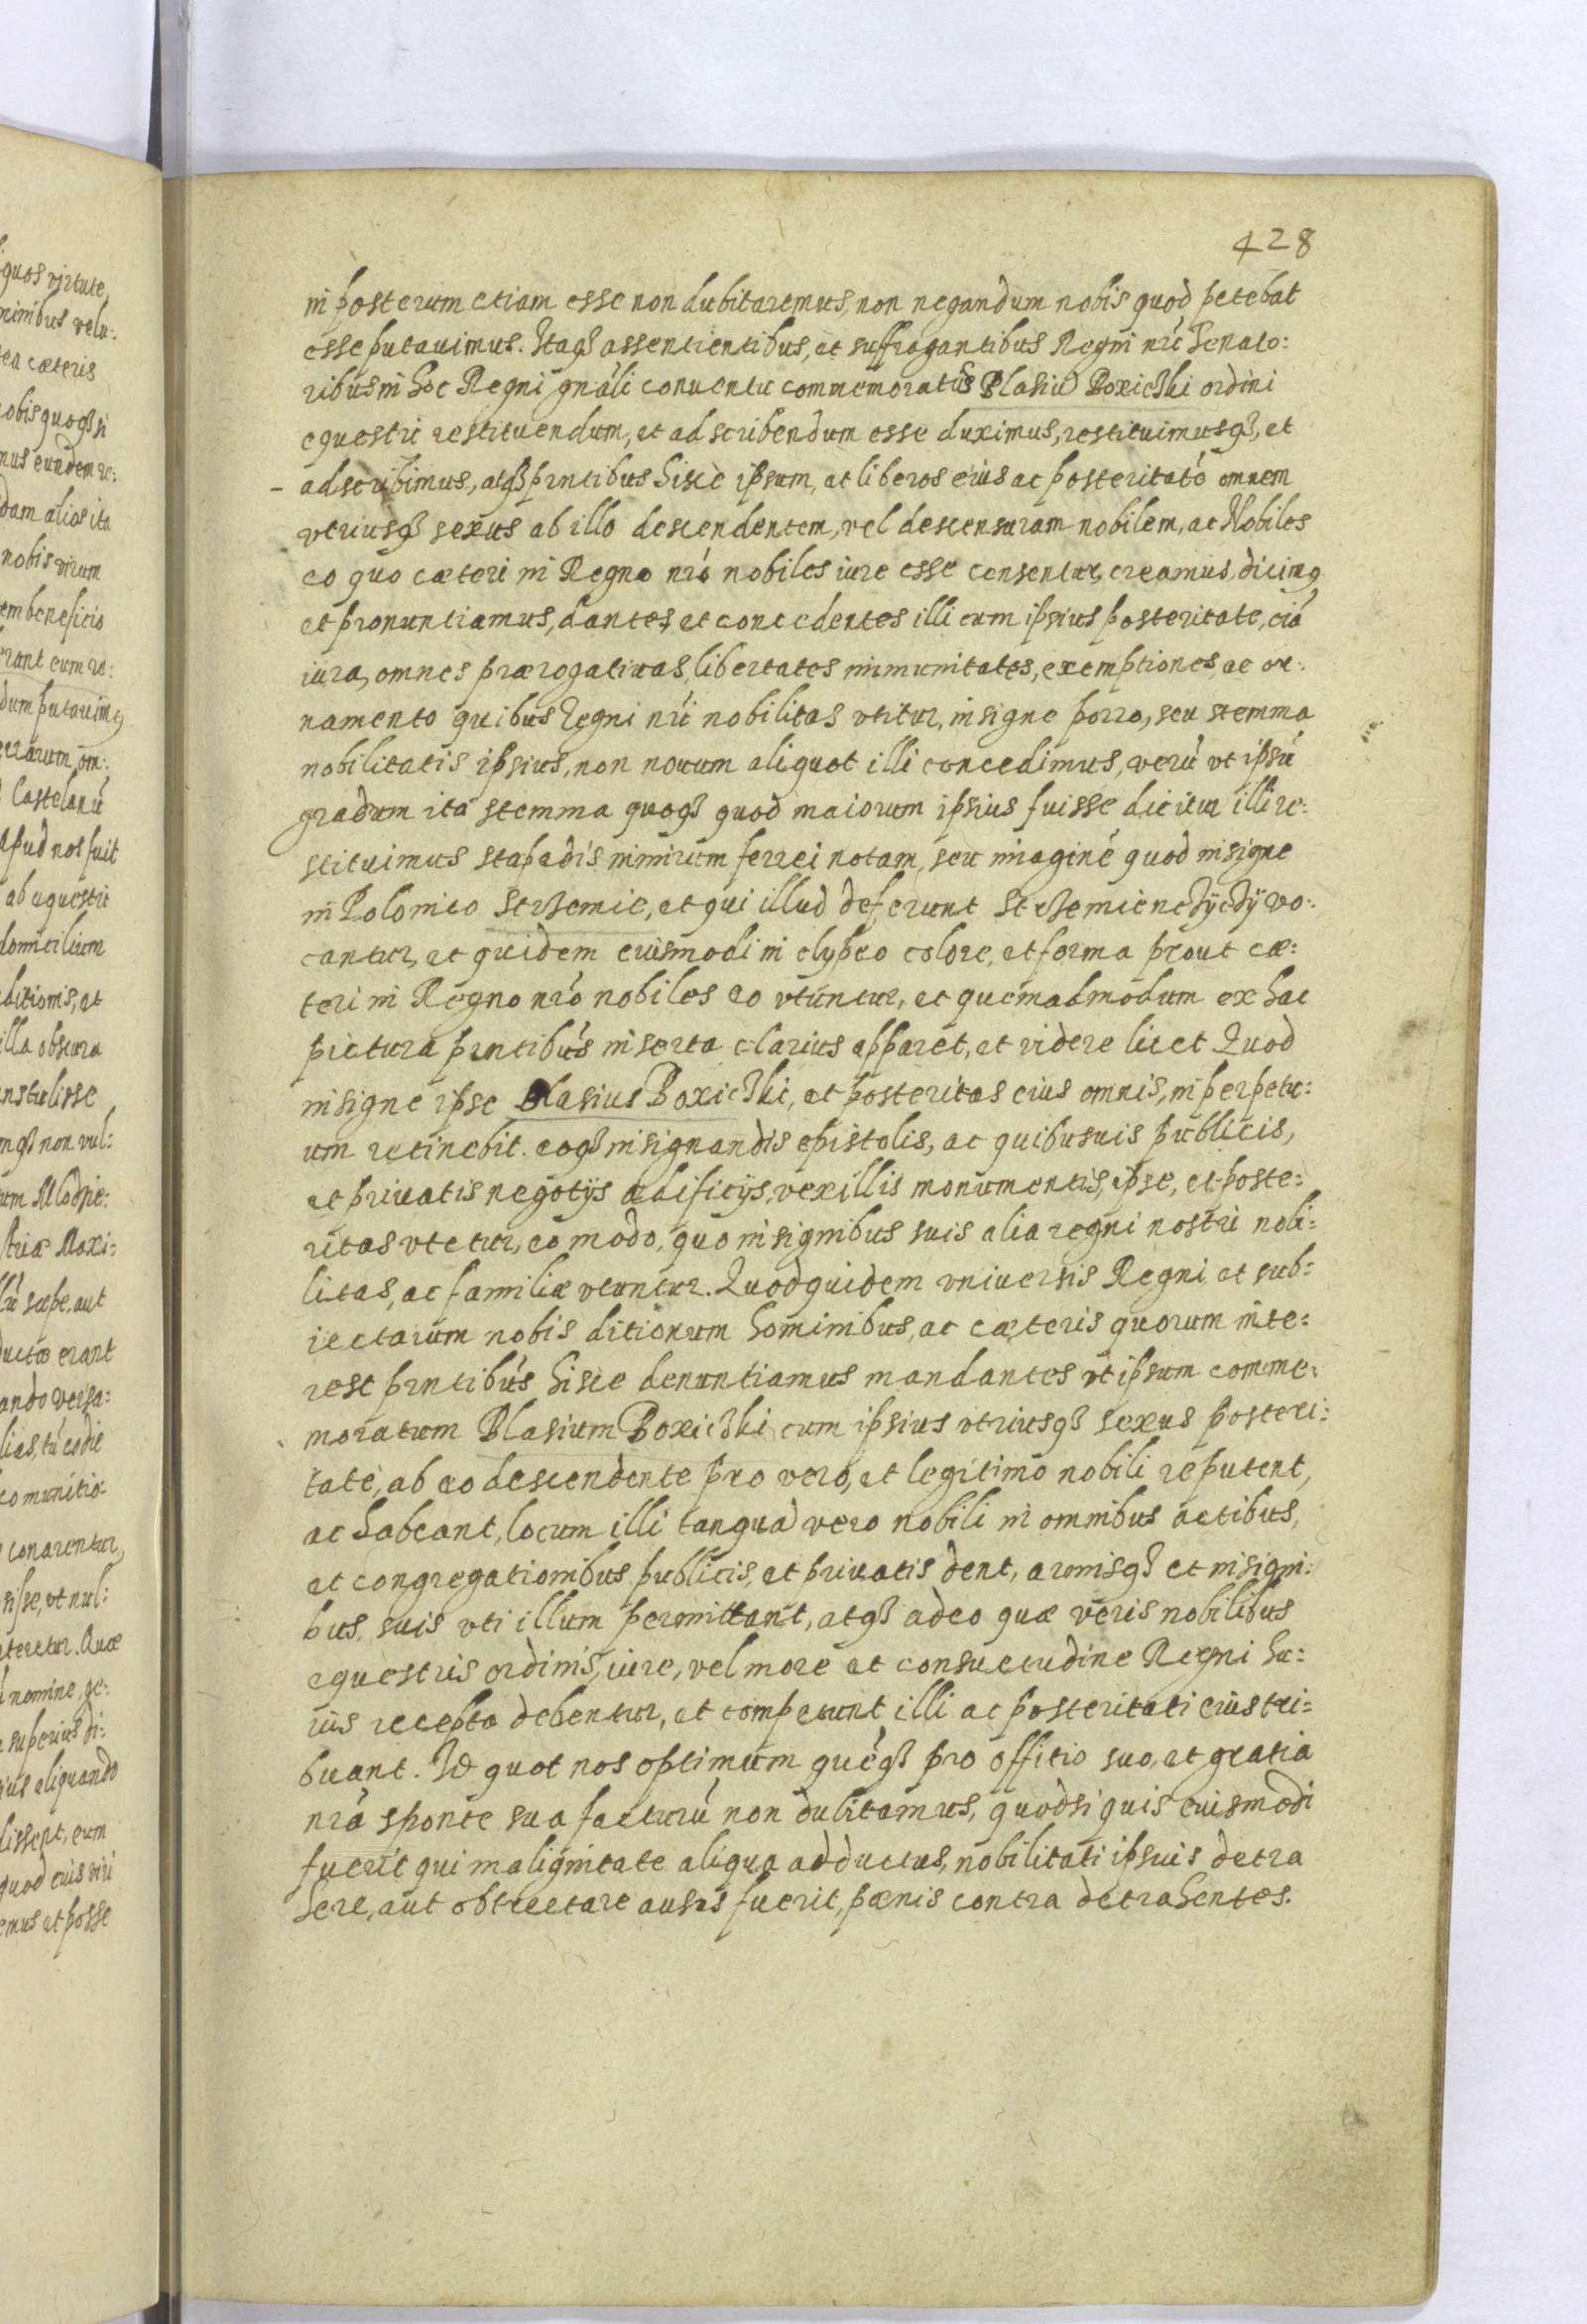 428
in posterum etiam esse non dubitaremus, non negandum nobis quod petebat
esse putauimus. Itaqȝ assentientibus, et suffragantibus Regni nrí Senato:
ribus in hoc Regni gnáli conuentu commemoratũ Blasiũ Boxiczki ordini
equestri restituendum, et adscribendum esse duximus, restituimusqȝ, et
adscribimus, atqȝ prntibus hisce ipsum, et liberos eius ac posteritaté omnem
vtriusqȝ sexus ab illo descendentem, vel descensuram nobilem, ac Nobiles
eo quo cæteri in Regno nró nobiles iure esse censentur, creamus, dicimꝯ
et pronuntiamus, dantes, et concedentes illi cum ipsius posteritate, eiá
iura, omnes prærogatiuas, libertates immunitates, exemptiones, ac or:
namento quibus Regni nrí nobilitas vtitur, insigne porro, seu stemma
nobilitatis ipsius, non nouum aliquot illi concedimus, verú vt ipsú
gradum ita stemma quoqȝ quod maiorum ipsius fuisse dicitur illi re:
stituimus stapadis nimirum ferrei notam, seu imaginé quod insigne
in Polonico Strzemie, et qui illud deferunt Strzemienczyczy vo:
cantur, et quidem euismodi in clypeo colore, et forma prout cæ:
teri in Regno nró nobiles eo vtuntur, et quemadmodum ex hac
pictura prntibus inserta clarius apparet, et videre licet Quod
insigne ipse Blasius Boxiczki, et posteritas eius omnis, in perpetu:
um retinebit. eoqȝ in signandis epistolis, ac quibusuis publicis,
et priuatis negotijs ædificijs, vexillis monumentis, ipse, et poste:
ritas vtetur, eo modo, quo insignibus suis alia regni nostri nobi:
litas, ac familiæ vtuntur. Quod quidem vniuersis Regni et sub:
iectarum nobis ditionum hominibus, ac cæteris quorum inte:
rest prntibus hisce denuntiamus mandantes vt ipsum comme:
moratum Blasium Boxiczki cum ipsius vtriusqȝ sexus posteri:
tate, ab eo descendente pro vero, et legitimo nobili reputent,
ac habeant, locum illi tanquā vero nobili in omnibus actibus,
et congregationibus publicis, et priuatis dent, armisqȝ et insigni:
bus, suis vti illum permittant, atqȝ adeo quæ veris nobilibus
equestris ordinis, iure, vel more et consuetudine Regni hu:
iis recepta debentur, et competunt illi ac posteritati eius tri:
buant. Id quot nos optimum quéqȝ pro offitio suo, et gratia
nrá sponte sua facturú non dubitamus, quodsi quis euismodi
fuerit qui malignitate aliqua adductus, nobilitati ipsuis detra
here, aut obtrectare ausus fuerit, pœnis contra detrahentes.